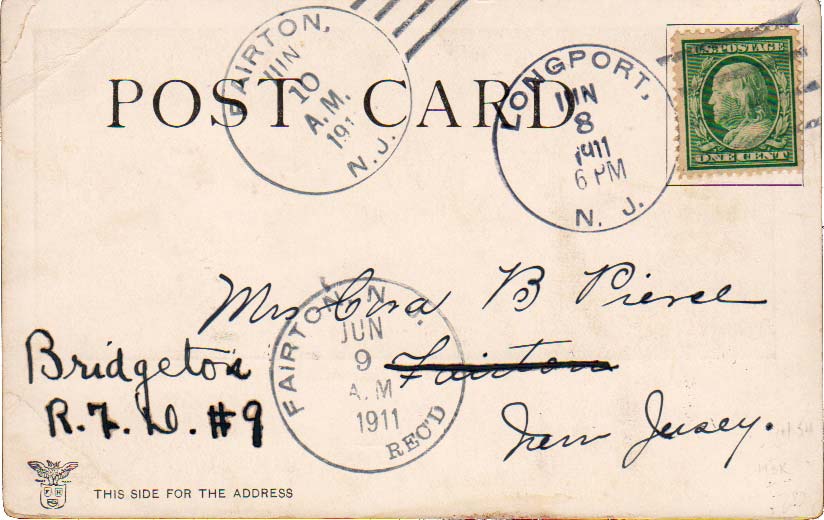 FAIRTON, N.J.
JUN
10
A.M.
191
LONGPORT, N. J.
JUN
8
1911
6 PM
U.S. POSTAGE
ONE CENT
POST CARD
Mrs Cora B Pierce
FAIRTON N. J. REC'D
JUN
9
A.M
1911
Fairton
Bridgeton
R.F.D. #9
New Jersey.
THIS SIDE FOR THE ADDRESS